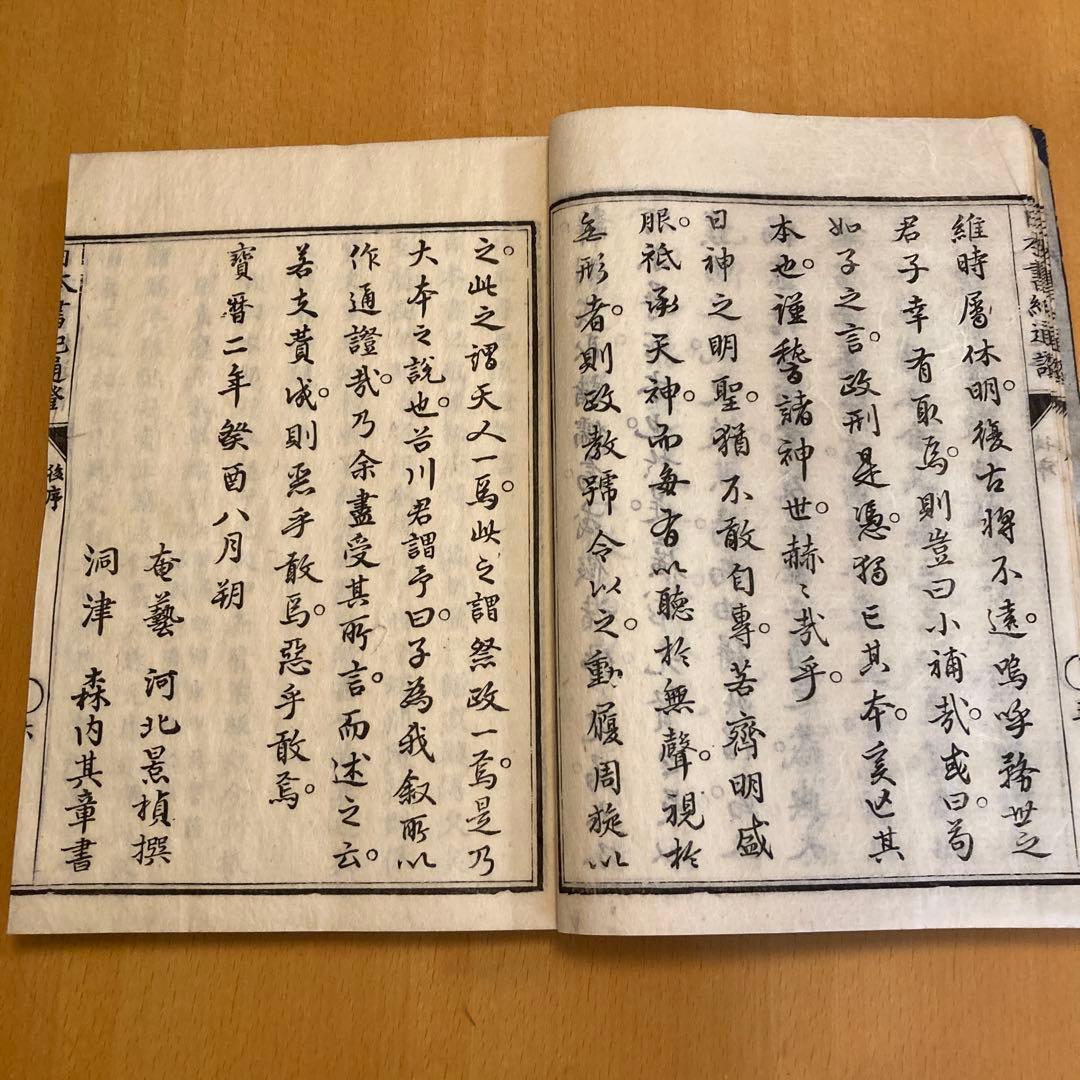 日本書紀通證
維時屬休明。復古將不遠。嗚呼務世之
君子幸有取焉。則豈曰小補哉。或曰。苟
如子之言。政刑是憑。獨亡其本。
本也。謹稽諸神世。赫〻哉乎。
日神之明聖。猶不敢自專。若齊明盛
服。祗承天神。而每有以聽於無聲。視於
無形者。則政教號令以之。動履周旋以
之。此之謂天人一焉。此之謂祭政一焉。是乃
大本之說也。谷川君謂予曰。子為我叙所以
作通證哉。乃余盡受其所言。而述之云。
若支蕢成。則惡乎敢焉。惡乎敢焉。
寶曆二年癸酉八月朔
奄藝 河北景楨撰
洞津 森內其章書
日本書紀通證
後序
六